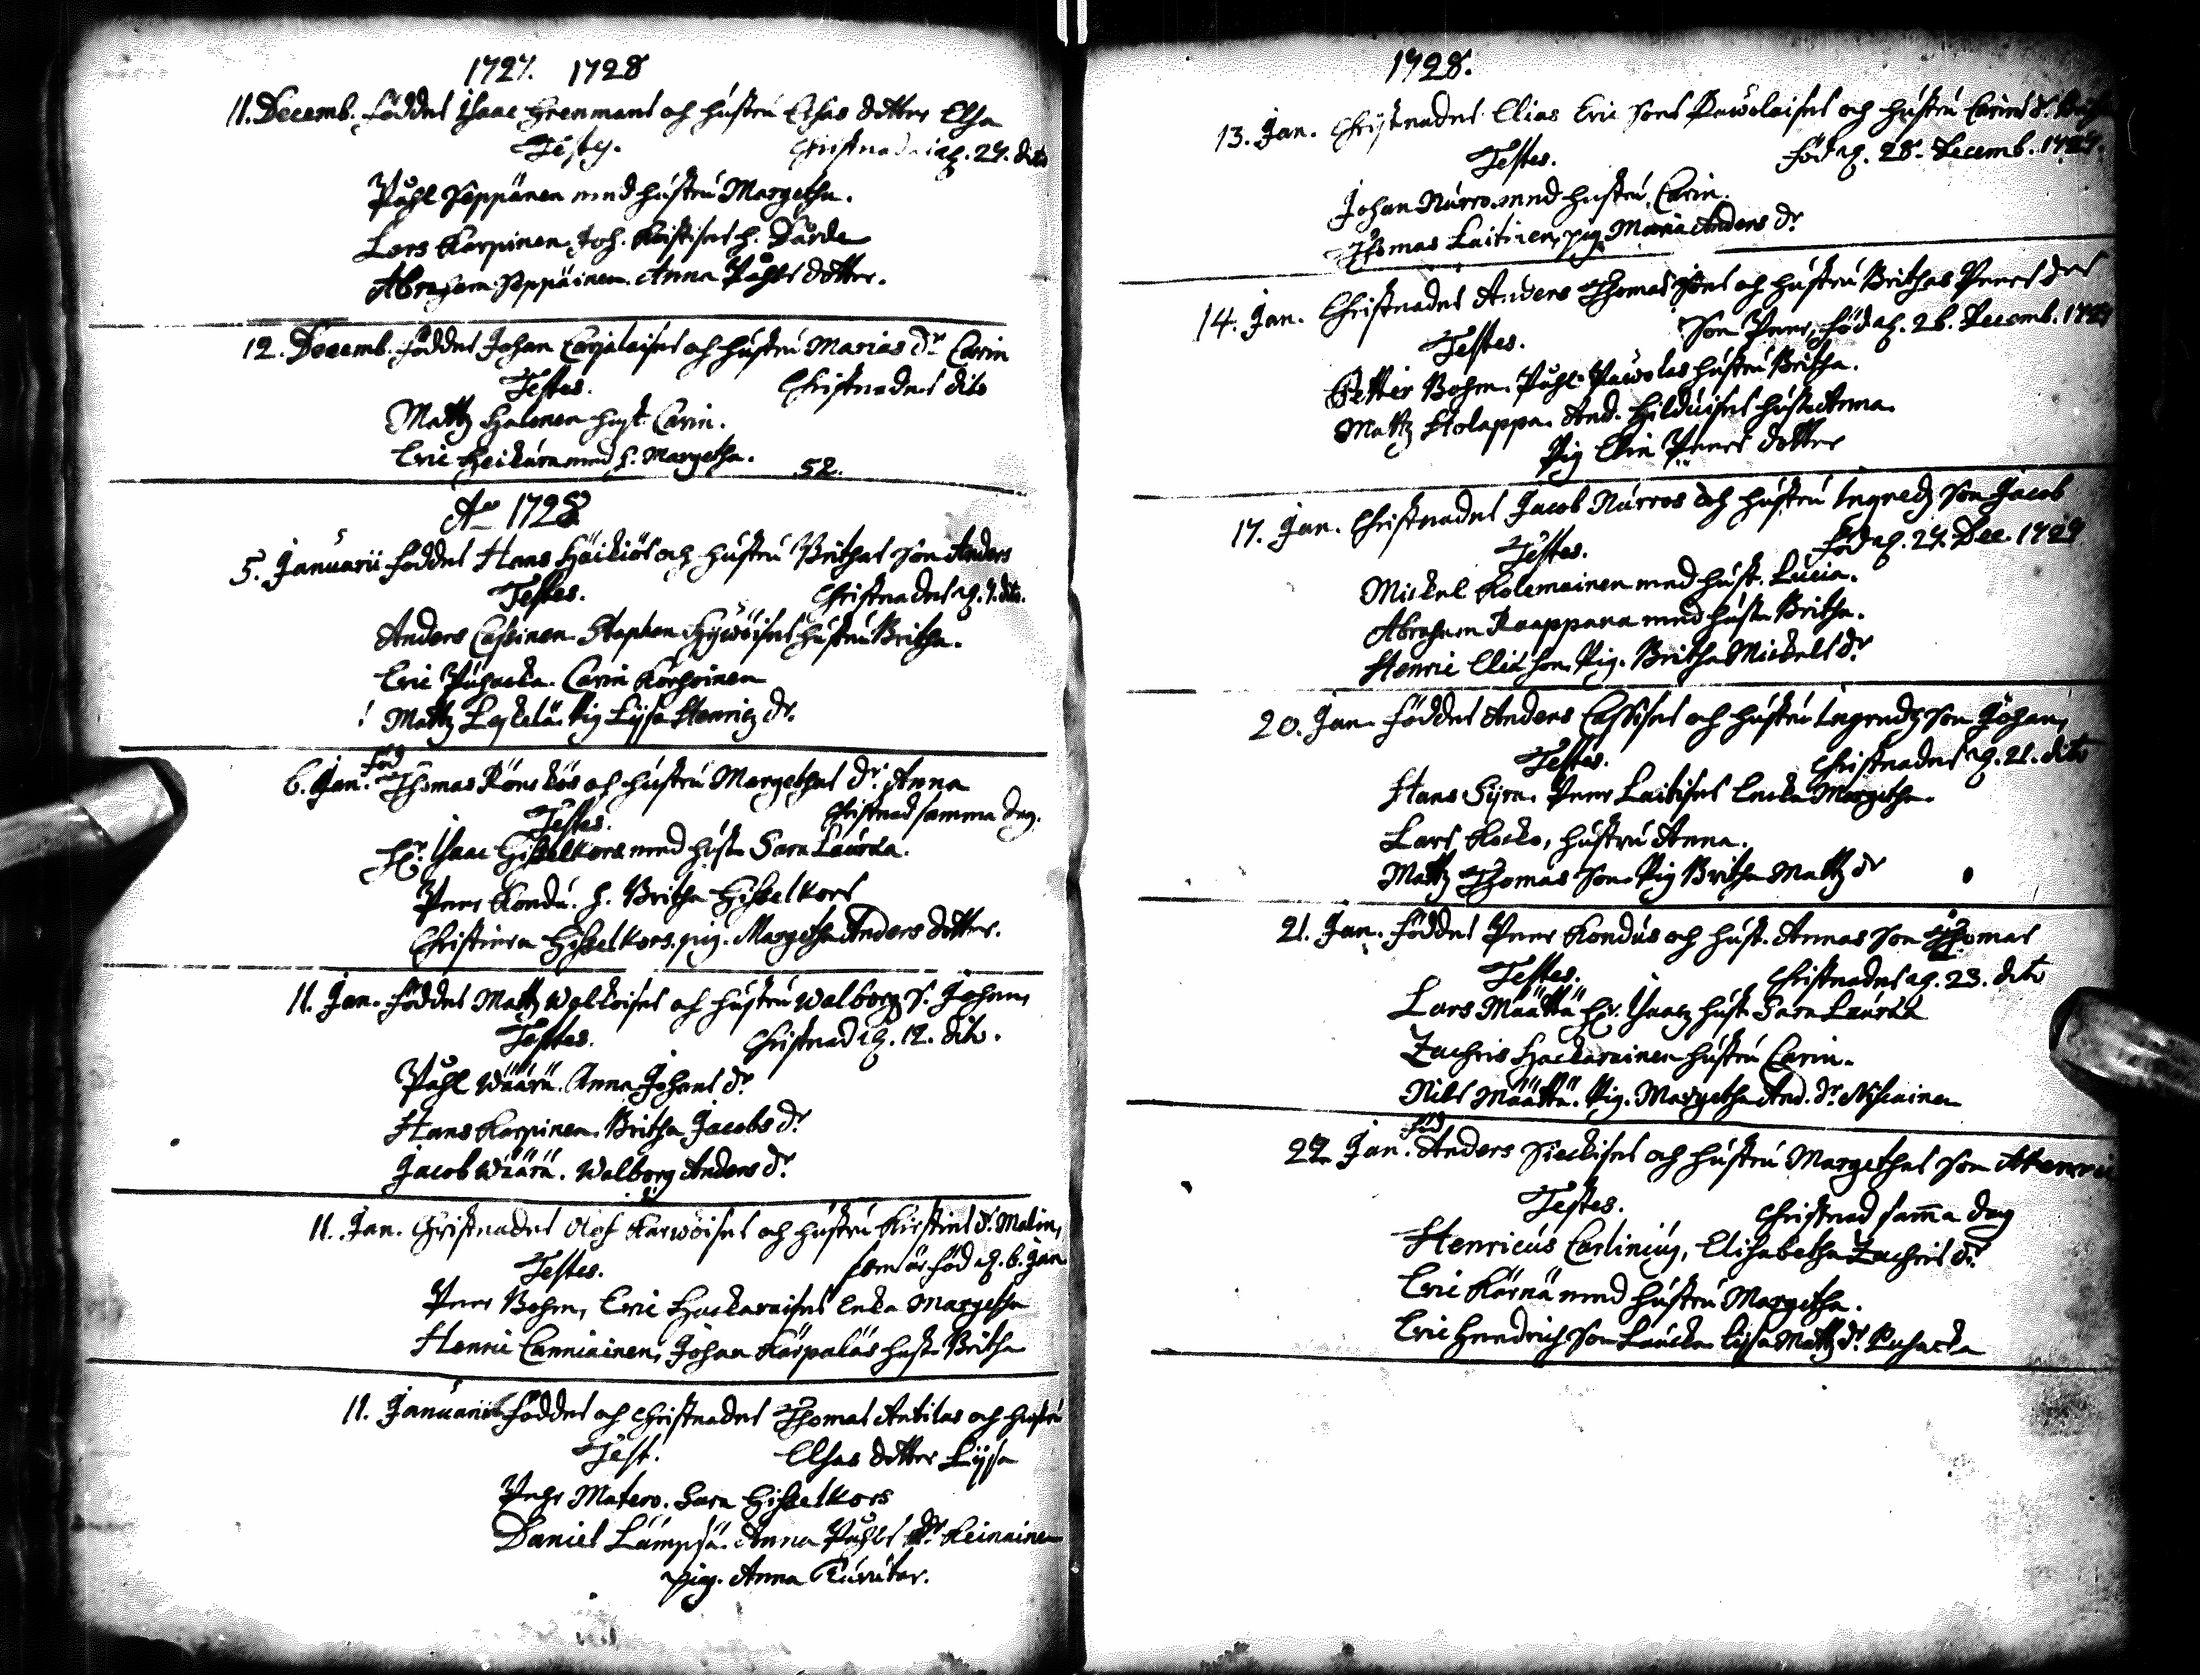 1727. 1728
11. Decemb. föddes Isaac Hrenmans och hustru Elsas dotter Elsa
Testes. Christnades d. 27. dito
Påhl Seppänen med hustru Margetha.
Lars Karpinen, Joh. Keistises h. Dårde
Abraham Seppäinen. Anna Påhls dotter.
12. Decemb. föddes Johan Carjalaises och hustru Marias dr. Carin
Testes. Christnades dito
Mattz Halonen hust. Carin.
Eric Heikura med h. Margetha. 52.
Ao 1728
5. Januarii föddes Hans Häikiös och hustru Brithas son Anders
Testes. Christnades d. 7. dito.
Anders Cassinen. Staphan Hywöises hustru Britha.
Eric Puhacka. Carin Korhoinen
Mattz Leskelä. Pig Lysa Henricz dr.
6. Jan. född Thomas Rönckös och hustru Margethas dr. Anna
Testes. Christnad samma dag.
Hr. Isaac Hisselkors med hust. Sara Laurda.
Peer Kondu. h. Britha Hisselkors
Christiern Hisselkors. pig. Margetha Anders dotter.
11. Jan. föddes Mattz Walkoises och hustru Walborg s. Johan,
Testes. Christnad d. 12. dito.
Påhl Wäärä. Anna Johans dr.
Hans Karpinen. Britha Jacobs dr.
Jacob Wäärä. Walborg Anders dr.
11. Jan. Christnades Olof Karwoises och hustru Kirstins d. Malin,
Testes. som är född d. 6. Jan
Peer Bohm, Eric Hackaraises enka Margetha
Henric Canniainen, Johan Kärpaläs hust. Britha
11. Januarii föddes och christnades Thomas Antilas och hustru
Test. Elsas dotter Lysa
Pehr Matero. Sara Hisselkors
Daniel Lämpsä. Anna Påhls dr. Keinainen
pig. Anna Kurutar.
1728.
13. Jan. Christnades Elias Eric Sons Pawolaises och hustru Carins d.
Testes. född d. 28. Decemb. 1727.
Johan Nurro med hustru Carin.
Thomas Laitinen, pig Maria Anders dr
14. Jan. Christnades Anders Thomas Sons och hustru Brithas Peers dr
Testes. Son Peer, född d. 26. Decemb. 1727
Petter Bohm. Påhl Pawolas hustru Britha.
Mattz Holappa. And. Hilduises hust. Anna.
Pig Elin Peers dotter
17. Jan. Christnades Jacob Nurros och hustru Ingredz son Jacob
Testes. född d. 27. Dec. 1727
Mickel Kolemainen med hust. Lucia.
Abraham Raappana med hust. Britha.
Henric Elia son. Pig. Britha Mickels dr
20. Jan. föddes Anders Cassises och hustru Ingredz son Johan,
Testes. Christnades d. 21. dito
Hans Syra. Peer Laitises Encka Margetha.
Lars Kocko, hustru Anna.
Mattz Thomas Son. Pig Britha Mattz dr
21. Jan. föddes Peer Kondus och hust. Annas son Thomas
Testes. Christnades d. 23. dito
Lars Määttä Hr. Isaacz hust. Sara Laurda
Zachris Hackarainen hustru Carin.
Nils Määttä. Pig. Margetha And. dr.
22. Jan. född Anders Sieckises och hustru Margethas son
Testes. Christnad samma dag
Henricus Carlinius, Elisabetha Zachris dr.
Eric Kärnä med hustru Margetha.
Eric Hendrich Son Laucka. Lysa Mattz dr. Puhacka